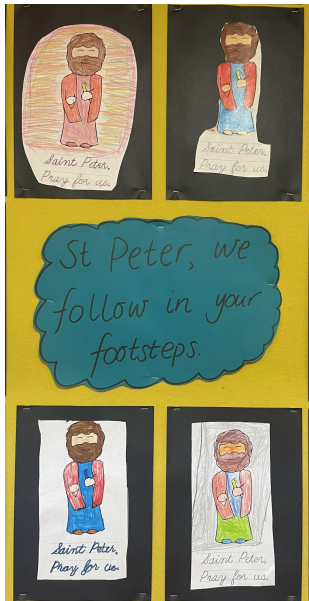 Saint Peter,
Pray for us.
Saint Peter,
Pray for us.
St Peter, we
follow in your
footsteps.
Saint Peter,
Pray for us.
Saint Peter,
Pray for us.